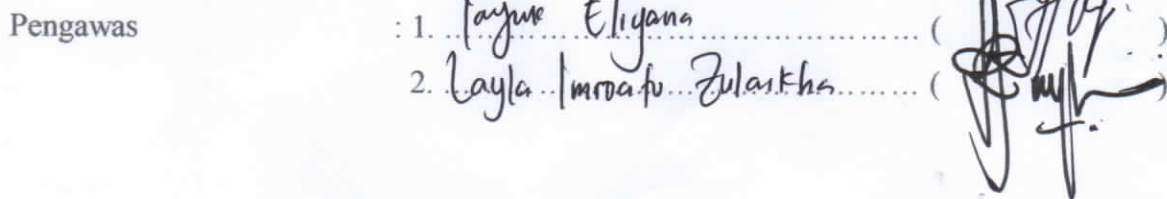 Pengawas : 1. Eliyana ( )
2. Layla Imroatu Zulaikha ( )